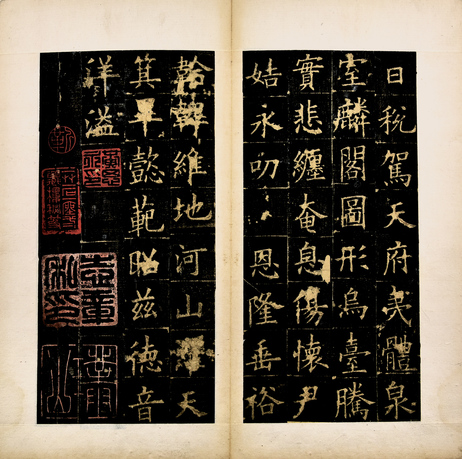 日稅駕天府夷體泉
室麟閣圖形烏臺騰
實悲纏奄息傷懷尹
姞永切恩隆垂裕
維地河山天
箕平懿範昭茲德音
洋溢